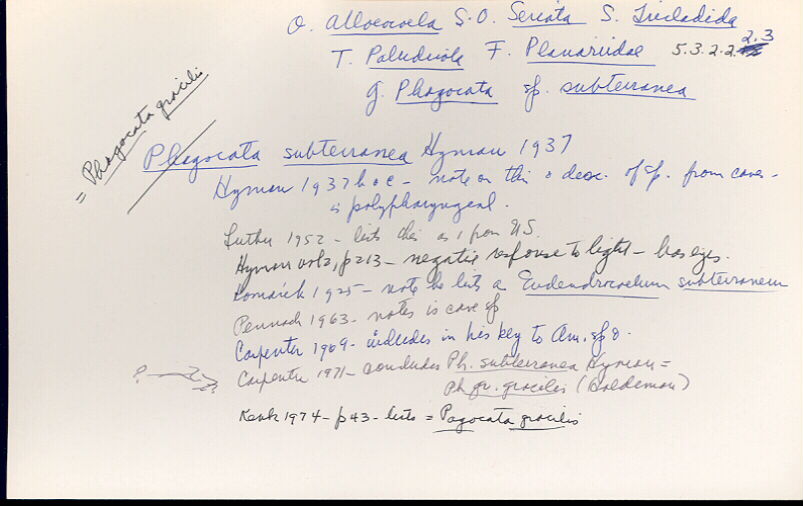 O. Alloeocoela S.O. Seriata S. Tricladida
T. Paludicola F. Planariidae 5.3.2.2.2.3
g. Phagocata sp. subterranea
= Phagocata gracilis
Phagocata subterranea Hyman 1937
Hyman 1937 b & c - note on this & desc. of sp. from caves -
is polypharyngeal.
Luther 1952 - lists this as 1 from U.S.
Hyman vol 2, p 213 - negative response to light - has eyes.
Komárek 1925 - note he lists a Eudendrocoelum subterraneum
Pennack 1963 - notes is cave sp
Carpenter 1969 - includes in his key to Am. sp
? Carpenter 1971 - concludes Ph. subterranea Hyman =
Ph. gr. gracilis (Haldeman)
Kenk 1974 - p 43 - lists = Pagocata gracilis